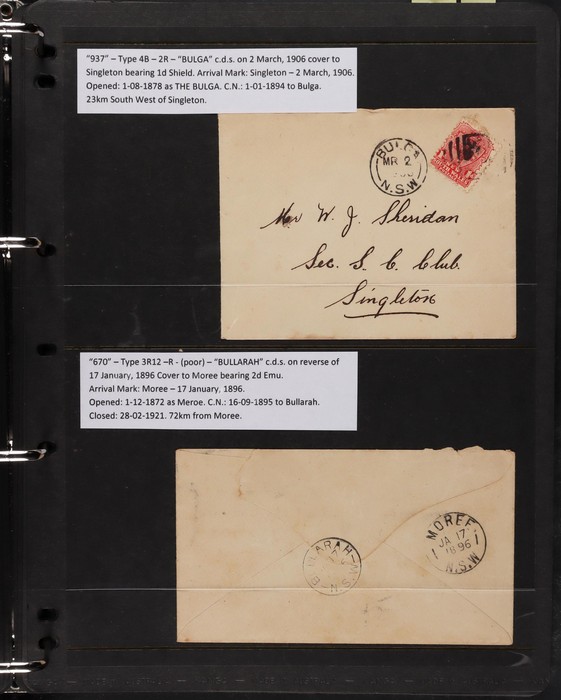 "937" – Type 4B – 2R – "BULGA" c.d.s. on 2 March, 1906 cover to
Singleton bearing 1d Shield. Arrival Mark: Singleton – 2 March, 1906.
Opened: 1-08-1878 as THE BULGA. C.N.: 1-01-1894 to Bulga.
23km South West of Singleton.
BULGA
MR 2
N.S.W
Mr W. J. Sheridan
Sec. S. C. Club.
Singleton
"670" – Type 3R12 –R - (poor) – "BULLARAH" c.d.s. on reverse of
17 January, 1896 Cover to Moree bearing 2d Emu.
Arrival Mark: Moree – 17 January, 1896.
Opened: 1-12-1872 as Meroe. C.N.: 16-09-1895 to Bullarah.
Closed: 28-02-1921. 72km from Moree.
MOREE
1 JA 17 1
1896
N.S.W